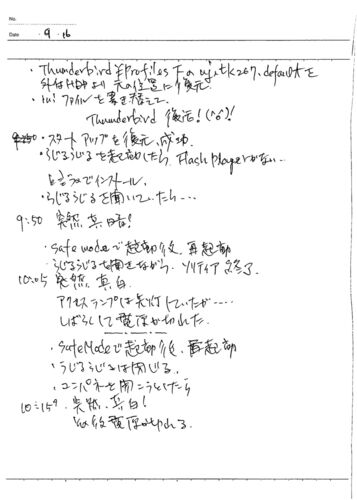 No.
Date 9・16
・Thunderbird¥Profiles 下の ujitk267.default を
外付HDDより元の位置に復元
・ini ファイルを書き替えて、
Thunderbird 復活! (^o^)!
・スタートアップを復元、成功
・らじるらじるを起動したら、Flash Playerがない…
と言うのでインストール、
・らじるらじるを聞いていたら…
9:50 突然 真暗!
・Safe modeで起動後、再起動
・らじるらじるを聞きながら、ソリティア 終了
10:05 突然 真白
アクセスランプは点灯していたが…
しばらくして電源が切れた。
・SafeModeで起動後、再起動
・らじるらじるは閉じる。
・コンパネを開こうとしたら
10:15 突然、真白!
その後電源切れる。